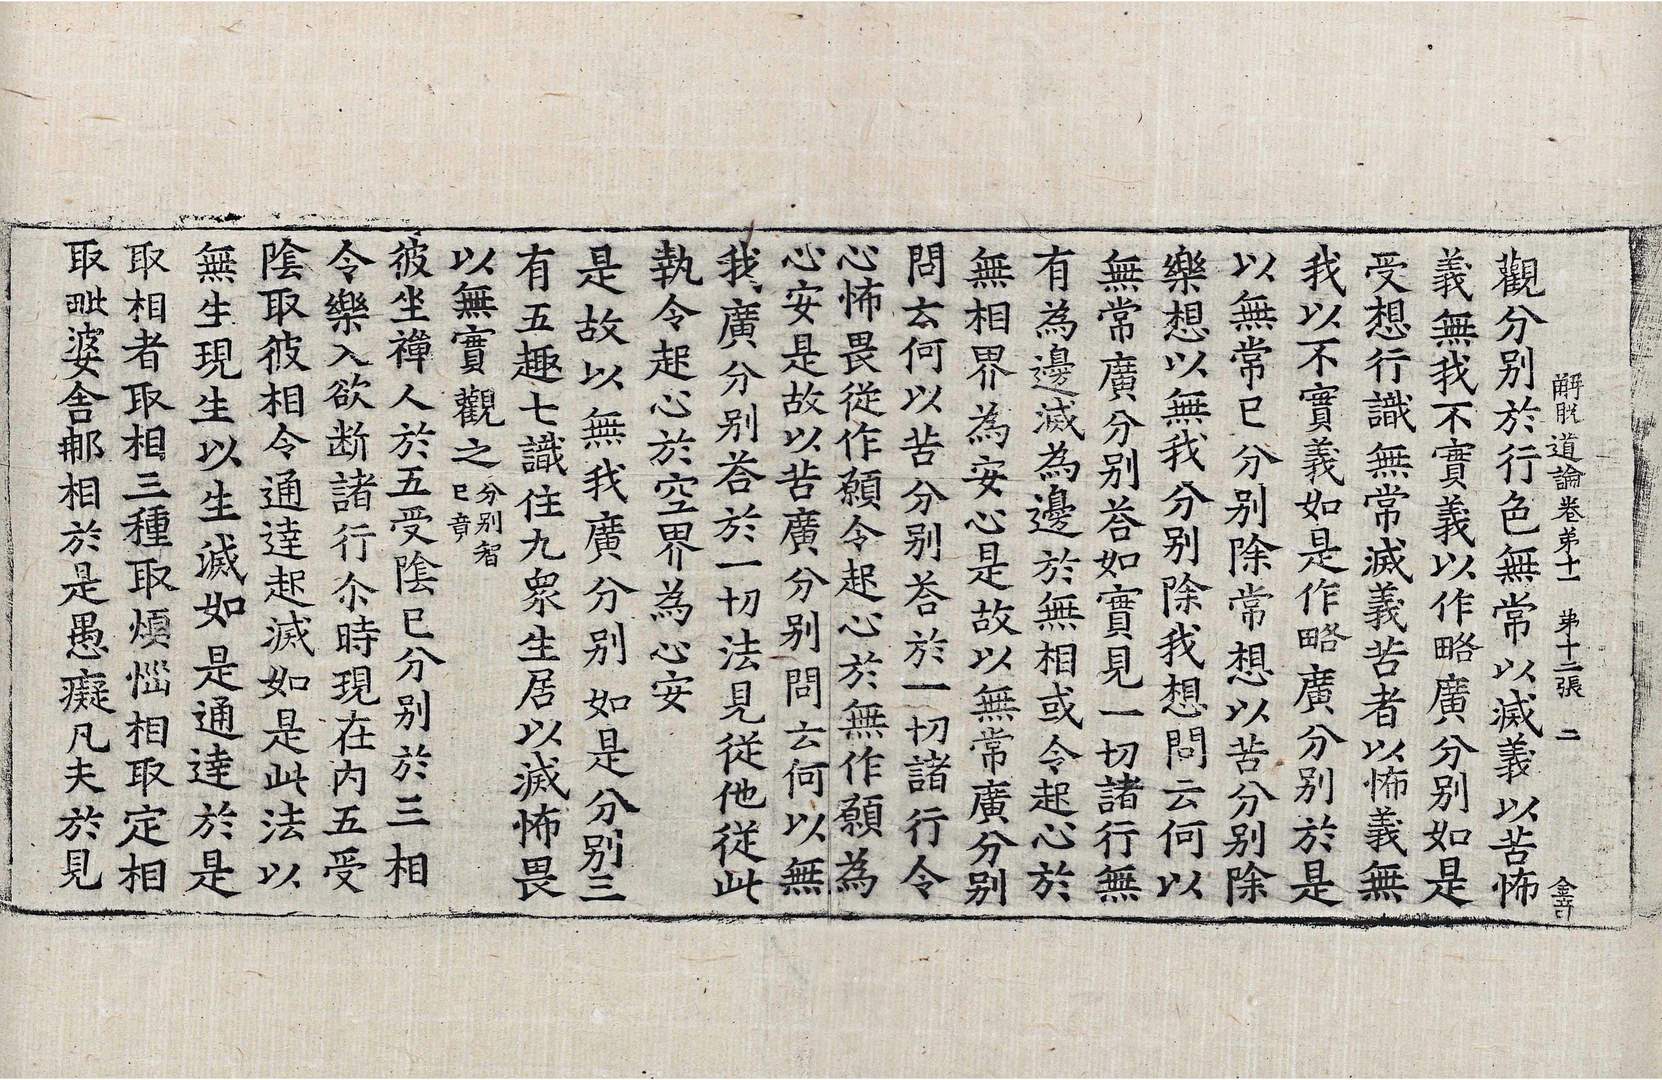 解脫道論卷第十一　第十二張　二
觀分別於行色無常以滅義以苦怖
義無我不實義以作略廣分別如是
受想行識無常滅義苦者以怖義無
我以不實義如是作略廣分別於是
以無常已分別除常想以苦分別除
樂想以無我分別除我想問云何以
無常廣分別荅如實見一切諸行無
有為邊滅為邊於無相或令起心於
無相界為安心是故以無常廣分別
問云何以苦分別荅於一切諸行令
心怖畏從作願令起心於無作願為
心安是故以苦廣分別問云何以無
我廣分別荅於一切法見從他從此
執令起心於空界為心安
是故以無我廣分別如是分別三
有五趣七識住九衆生居以滅怖畏
以無實觀之分別智已竟
彼坐禪人於五受陰已分別於三相
令樂入欲断諸行尒時現在內五受
陰取彼相令通達起滅如是此法以
無生現生以生滅如是通達於是
取相者取相三種取煩惱相取定相
取毗婆舍那相於是愚癡凡夫於見